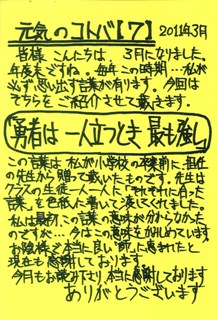 元気のコトバ【7】 2011年3月
皆様こんにちは。3月になりました。
年度末ですね。毎年この時期…私が
必ず思い出す言葉が有ります。今回は
そちらをご紹介させて戴きます。
「勇者は一人立つとき最も強し」
この言葉は私が小学校の卒業前に担任
の先生から贈って戴いたものです。先生は
クラスの生徒一人一人に「それぞれに合った
言葉」を色紙に書いて渡してくれました。
私は最初この言葉の意味が分からなかった
のですが…今はこの意味をかみしめています
お陰様で本当に良い「師」に恵まれたと
現在も感謝しております
今月もお読み下り本当に感謝しております
ありがとうございます